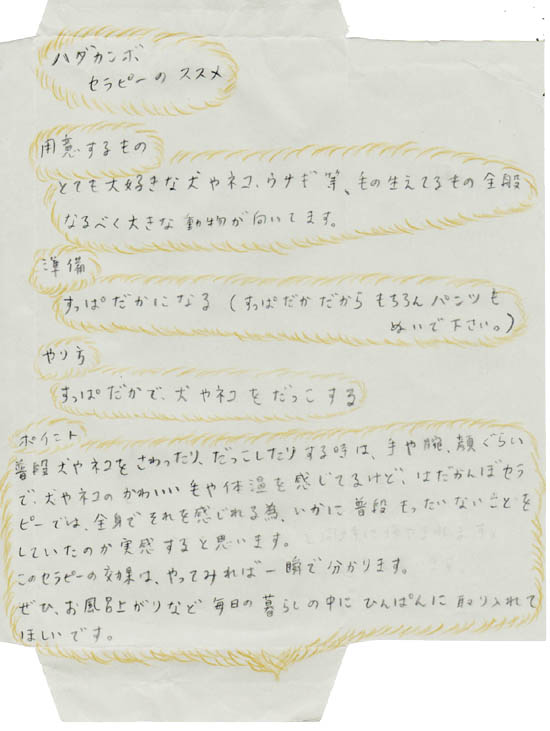 ハダカンボ
セラピーのススメ
用意するもの
とても大好きな犬やネコ、ウサギ等、毛の生えてるもの全般
なるべく大きな動物が向いてます。
準備
すっぱだかになる(すっぱだかだからもちろんパンツも
ぬいで下さい。)
やり方
すっぱだかで、犬やネコをだっこする
ポイント
普段犬やネコをさわったり、だっこしたりする時は、手や腕、顔ぐらい
で、犬やネコのかわいい毛や体温を感じてるけど、はだかんぼセラ
ピーでは、全身でそれを感じれる為、いかに普段もったいないことを
していたのか実感すると思います。
このセラピーの効果は、やってみれば一瞬で分かります。
ぜひ、お風呂上がりなど毎日の暮らしの中にひんぱんに取り入れて
ほしいです。